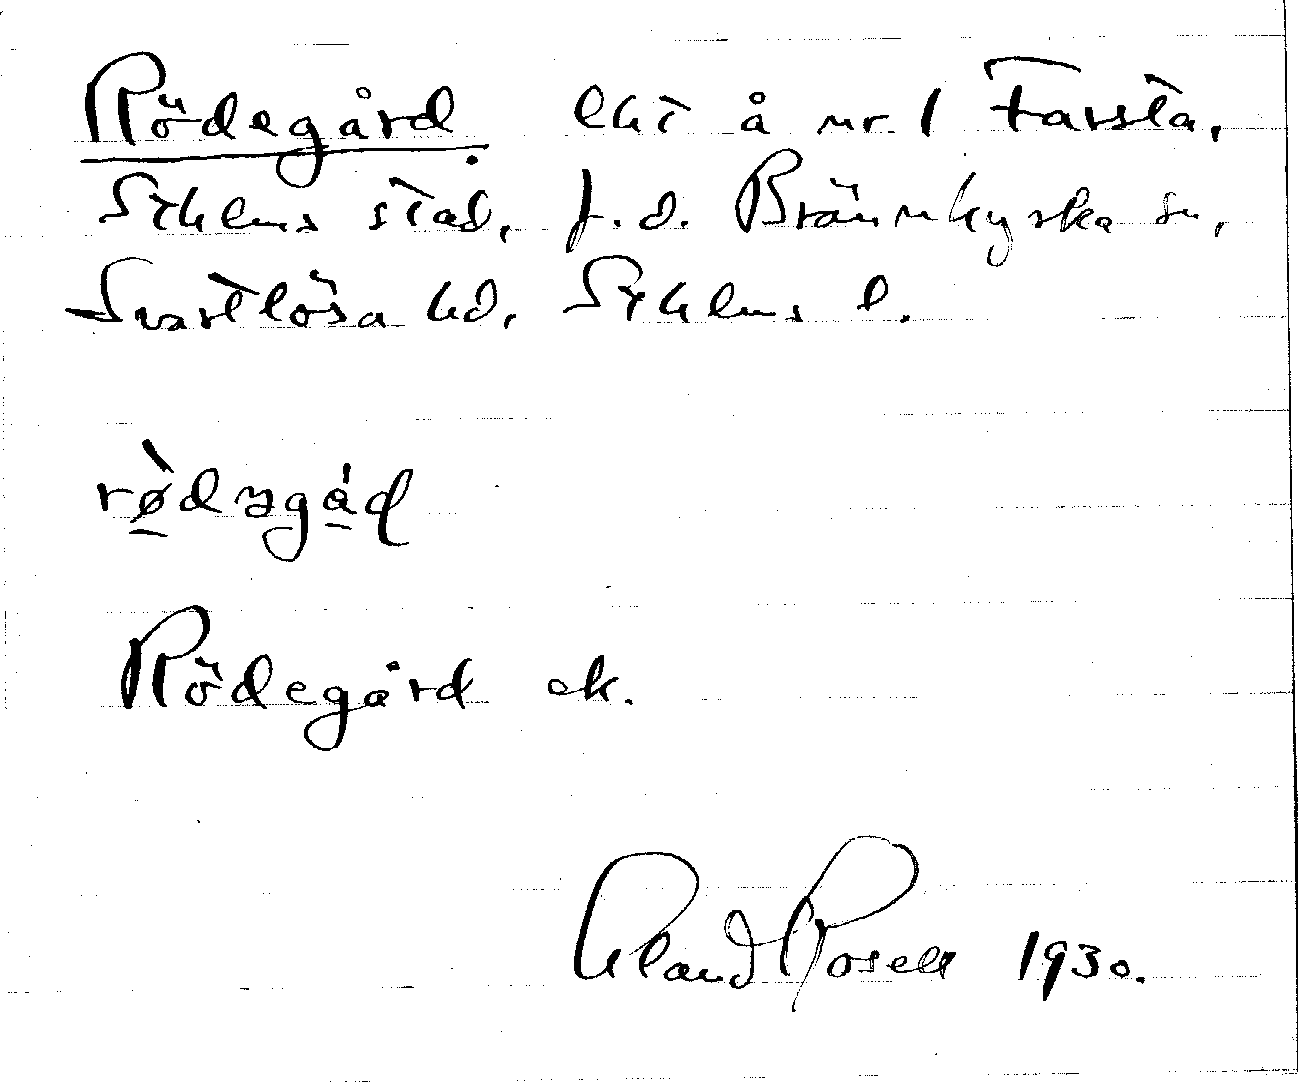 Rödegård. lht å nr 1 Farsta,
Sthlms stad, f.d. Brännkyrka sn,
Svartlösa hd, Sthlms l.
rø̀dəgáɖ
Rödegård ek.
Erland Rosell 1930.